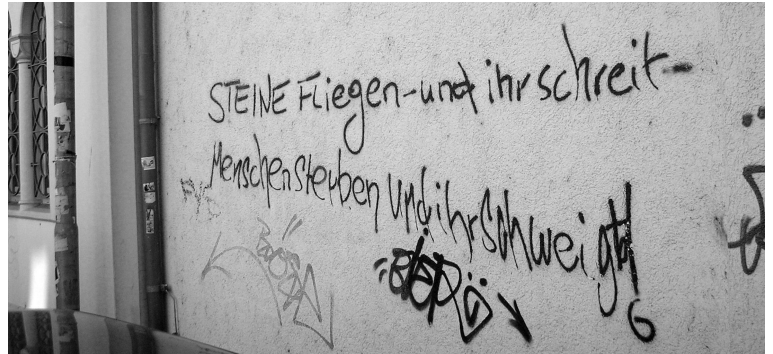 STEINE FLiegen-und ihr schreit-
Menschen sterben und ihr schweigt!